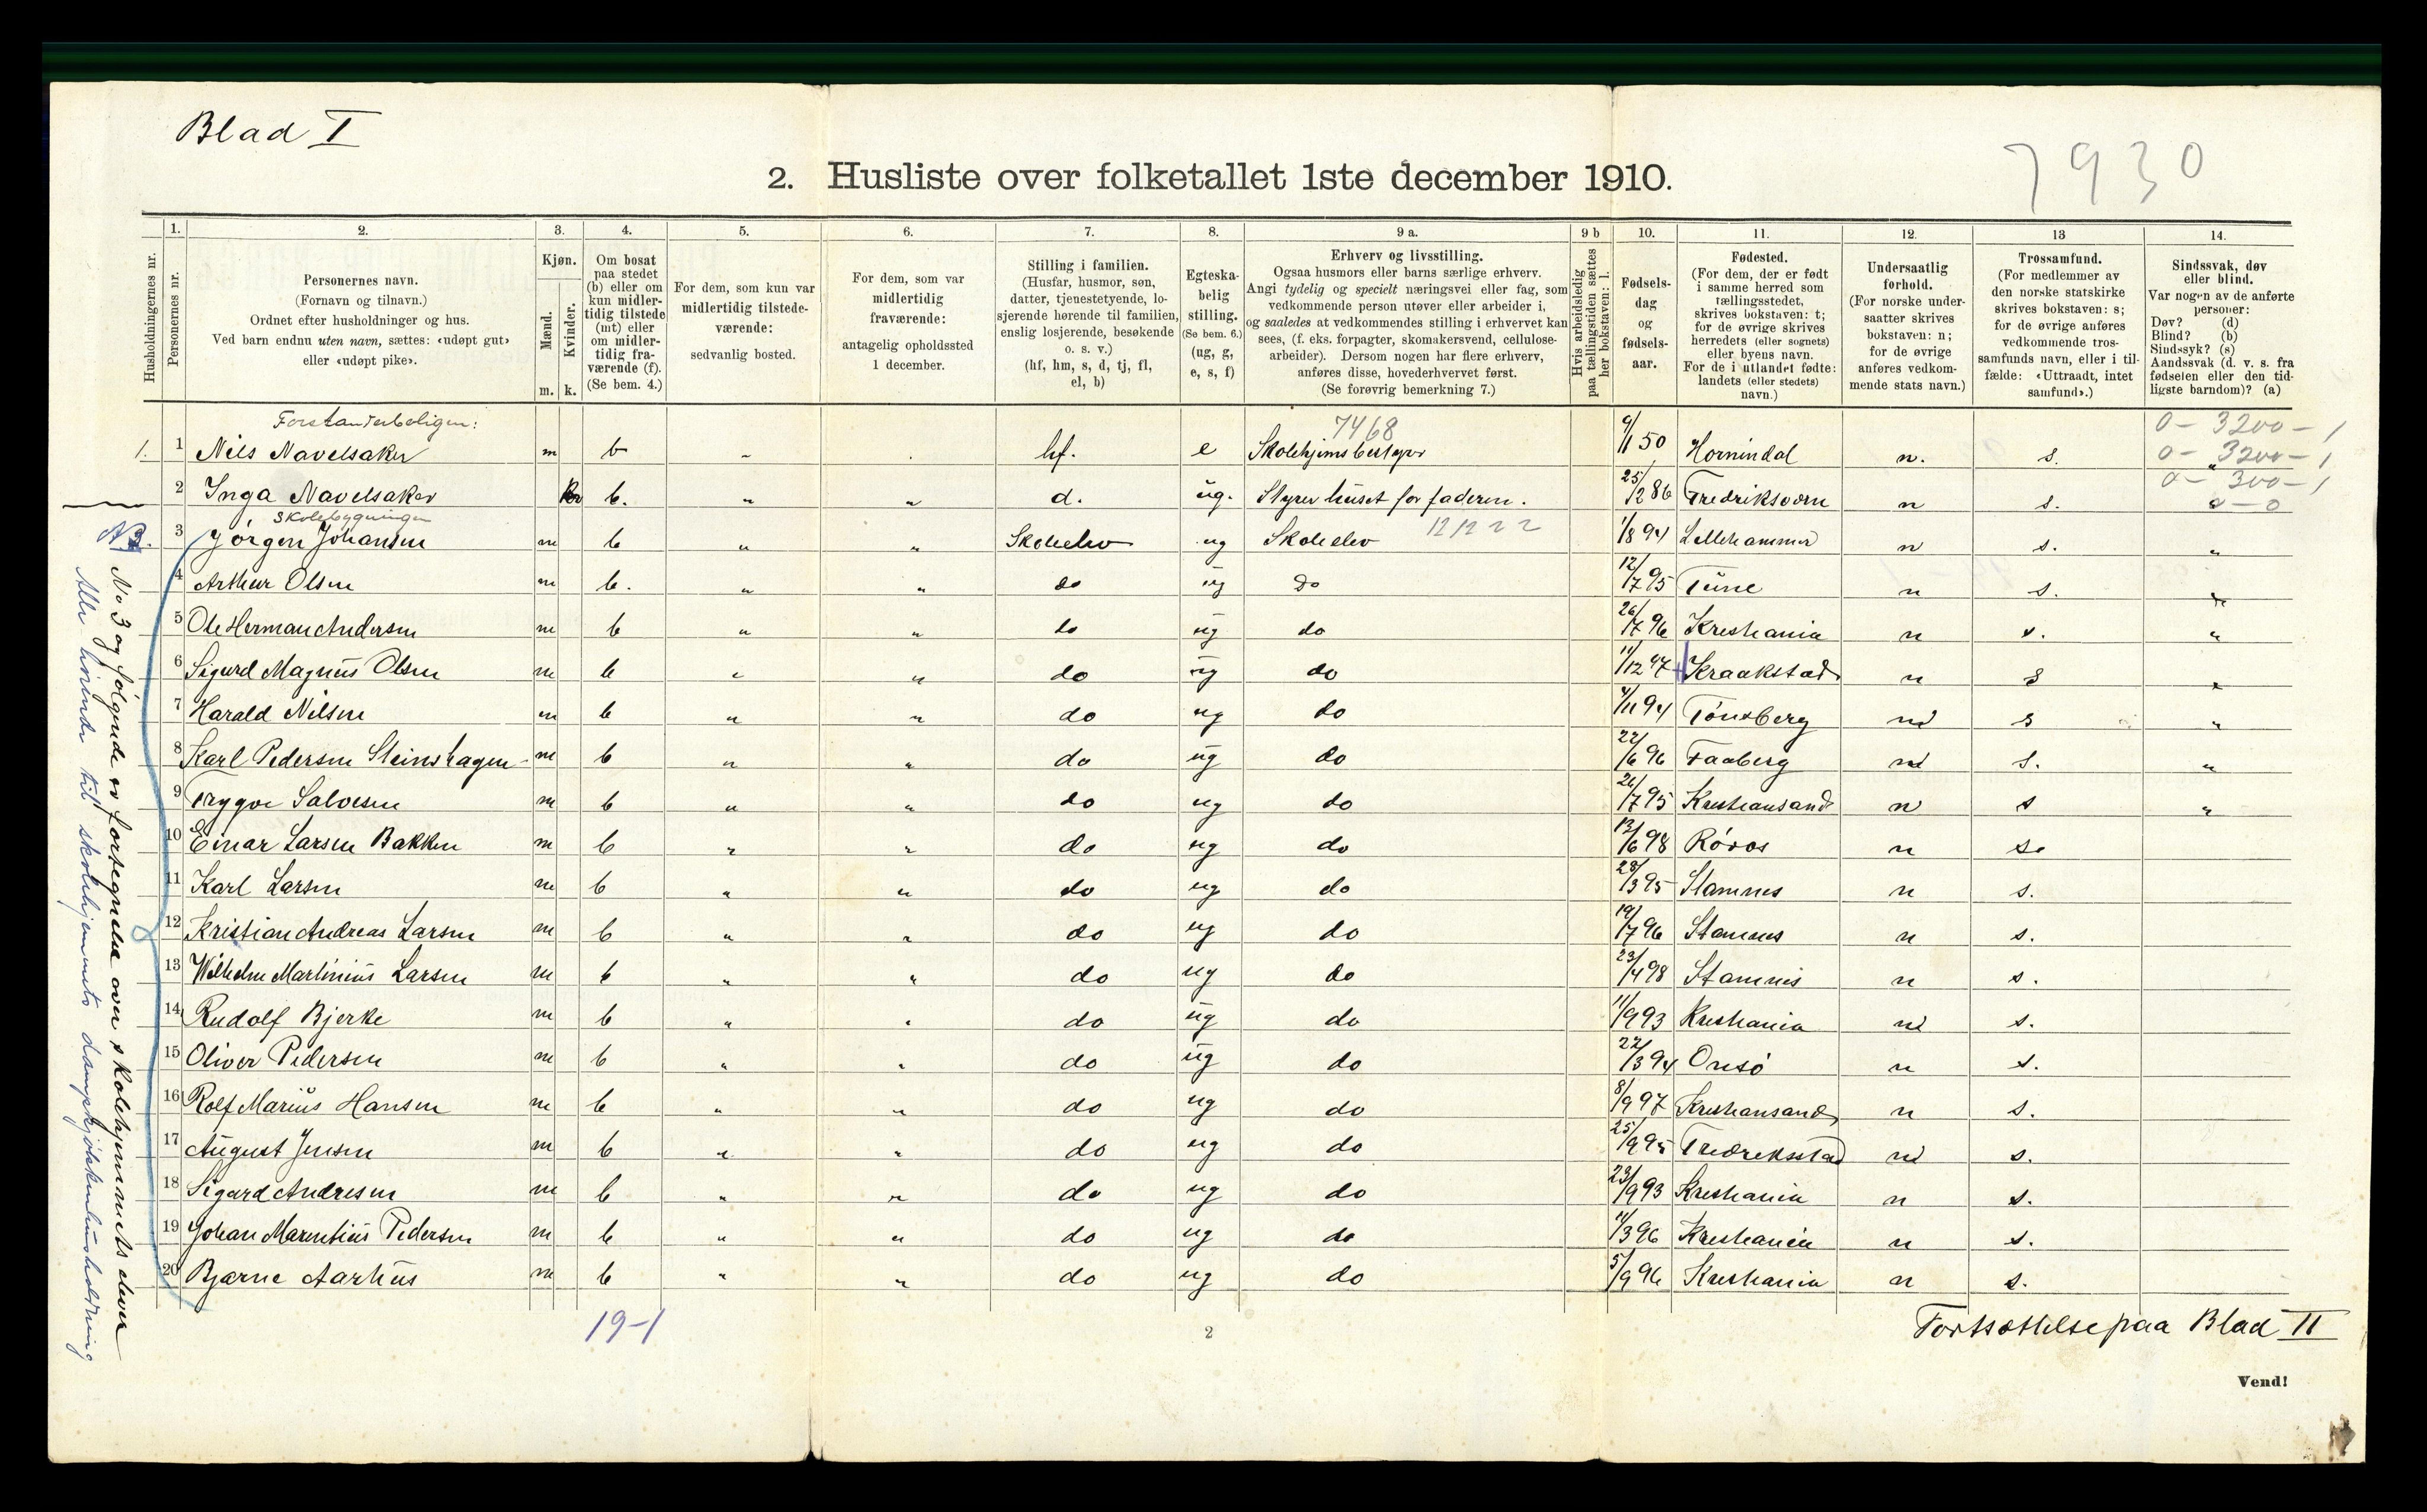 Blad I
7930
2. Husliste over folketallet 1ste december 1910.
Husholdningernes nr.
1. Personernes nr.
2. Personernes navn. (Fornavn og tilnavn.) Ordnet efter husholdninger og hus. Ved barn endnu uten navn, sættes: «udøpt gut» eller «udøpt pike».
3. Kjøn. Mænd. m. Kvinder. k.
4. Om bosat paa stedet (b) eller om kun midlertidig tilstede (mt) eller om midlertidig fraværende (f). (Se bem. 4.)
5. For dem, som kun var midlertidig tilstedeværende: sedvanlig bosted.
6. For dem, som var midlertidig fraværende: antagelig opholdssted 1 december.
7. Stilling i familien. (Husfar, husmor, søn, datter, tjenestetyende, losjerende hørende til familien, enslig losjerende, besøkende o. s. v.) (hf, hm, s, d, tj, fl, el, b)
8. Egteskabelig stilling. (Se bem. 6.) (ug, g, e, s, f)
9 a. Erhverv og livsstilling. Ogsaa husmors eller barns særlige erhverv. Angi tydelig og specielt næringsvei eller fag, som vedkommende person utøver eller arbeider i, og saaledes at vedkommendes stilling i erhvervet kan sees, (f. eks. forpagter, skomakersvend, cellulosearbeider). Dersom nogen har flere erhverv, anføres disse, hovederhvervet først. (Se forøvrig bemerkning 7.)
9 b Hvis arbeidsledig paa tællingstiden sættes her bokstaven: l.
10. Fødselsdag og fødselsaar.
11. Fødested. (For dem, der er født i samme herred som tællingsstedet, skrives bokstaven: t; for de øvrige skrives herredets (eller sognets) eller byens navn. For de i utlandet fødte: landets (eller stedets) navn.)
12. Undersaatlig forhold. (For norske undersaatter skrives bokstaven: n; for de øvrige anføres vedkommende stats navn.)
13 Trossamfund. (For medlemmer av den norske statskirke skrives bokstaven: s; for de øvrige anføres vedkommende trossamfunds navn, eller i tilfælde: «Uttraadt, intet samfund».)
14. Sindssvak, døv eller blind. Var nogen av de anførte personer: Døv? (d) Blind? (b) Sindssyk? (s) Aandssvak (d. v. s. fra fødselen eller den tidligste barndom)? (a)
Forstanderboligen: 7468 0 - 3200 - 1
1. 1 Nils Navelsaker m b " hf. e Skolehjemsbestyrer 9/11 50 Hornindal n. s. 0 - 3200 - 1
0 - 300 - 1
2 Inga Navelsaker k b. " " d. ug. Styrer huset for faderen. 25/2 86 Fredriksværn n s. 0 - 0
Skolebygningen 121222
3 Jörgen Johansen m b " " Skoleelev ug Skoleelev 1/8 94 Lillehammer n s. "
4 Arthur Olsen m b. " " do ug Do 12/7 95 Tune n s. "
5 Ole Herman Andersen m b " " do ug do 26/7 96 Kristiania n s. "
6 Sigurd Magnus Olsen m b " " do ug do 11/12 97 Kraakstad n s "
7 Harald Nilsen m b " " do ug do 4/11 94 Tönsberg n s "
8 Karl Pedersen Steinshagen m b " " do ug do 22/6 96 Faaberg n s. "
9 Trygve Salvesen m b " " do ug do 26/7 95 Kristiansand n s "
10 Einar Larsen Bakken m b " " do ug do 13/6 98 Röros n s.
11 Karl Larsen m b " " do ug do 28/3 95 Stamnes n s.
12 Kristian Andreas Larsen m b " " do ug do 19/7 96 Stamnes n s.
13 Wilhelm Martinius Larsen m b " " do ug do 23/4 98 Stamnes n s.
14 Rudolf Bjerke m b " " do ug do 11/9 93 Kristiania n s.
15 Oliver Pedersen m b " " do ug do 22/3 94 Onsö n s.
16 Rolf Marius Hansen m b " " do ug do 8/9 97 Kristiansand n s.
17 August Jensen m b " " do ug do 25/9 95 Fredrikstad n s.
18 Sigurd Andresen m b " " do ug do 23/9 93 Kristiania n s.
19 Johan Marentius Pedersen m b " " do ug do 11/3 96 Kristiania n s.
20 Bjarne Aarhus m b " " do ug do 5/9 96 Kristiania n s.
NB. No 3 og fölgende er fortegnelse over skolehjemmets elever
Alle hörende til skolehjemmets dampkjökkenhusholdning
19-1
2
Fortsættelse paa Blad II
Vend!